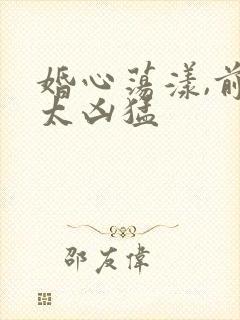 婚心荡漾,前
太凶猛
邵友伟